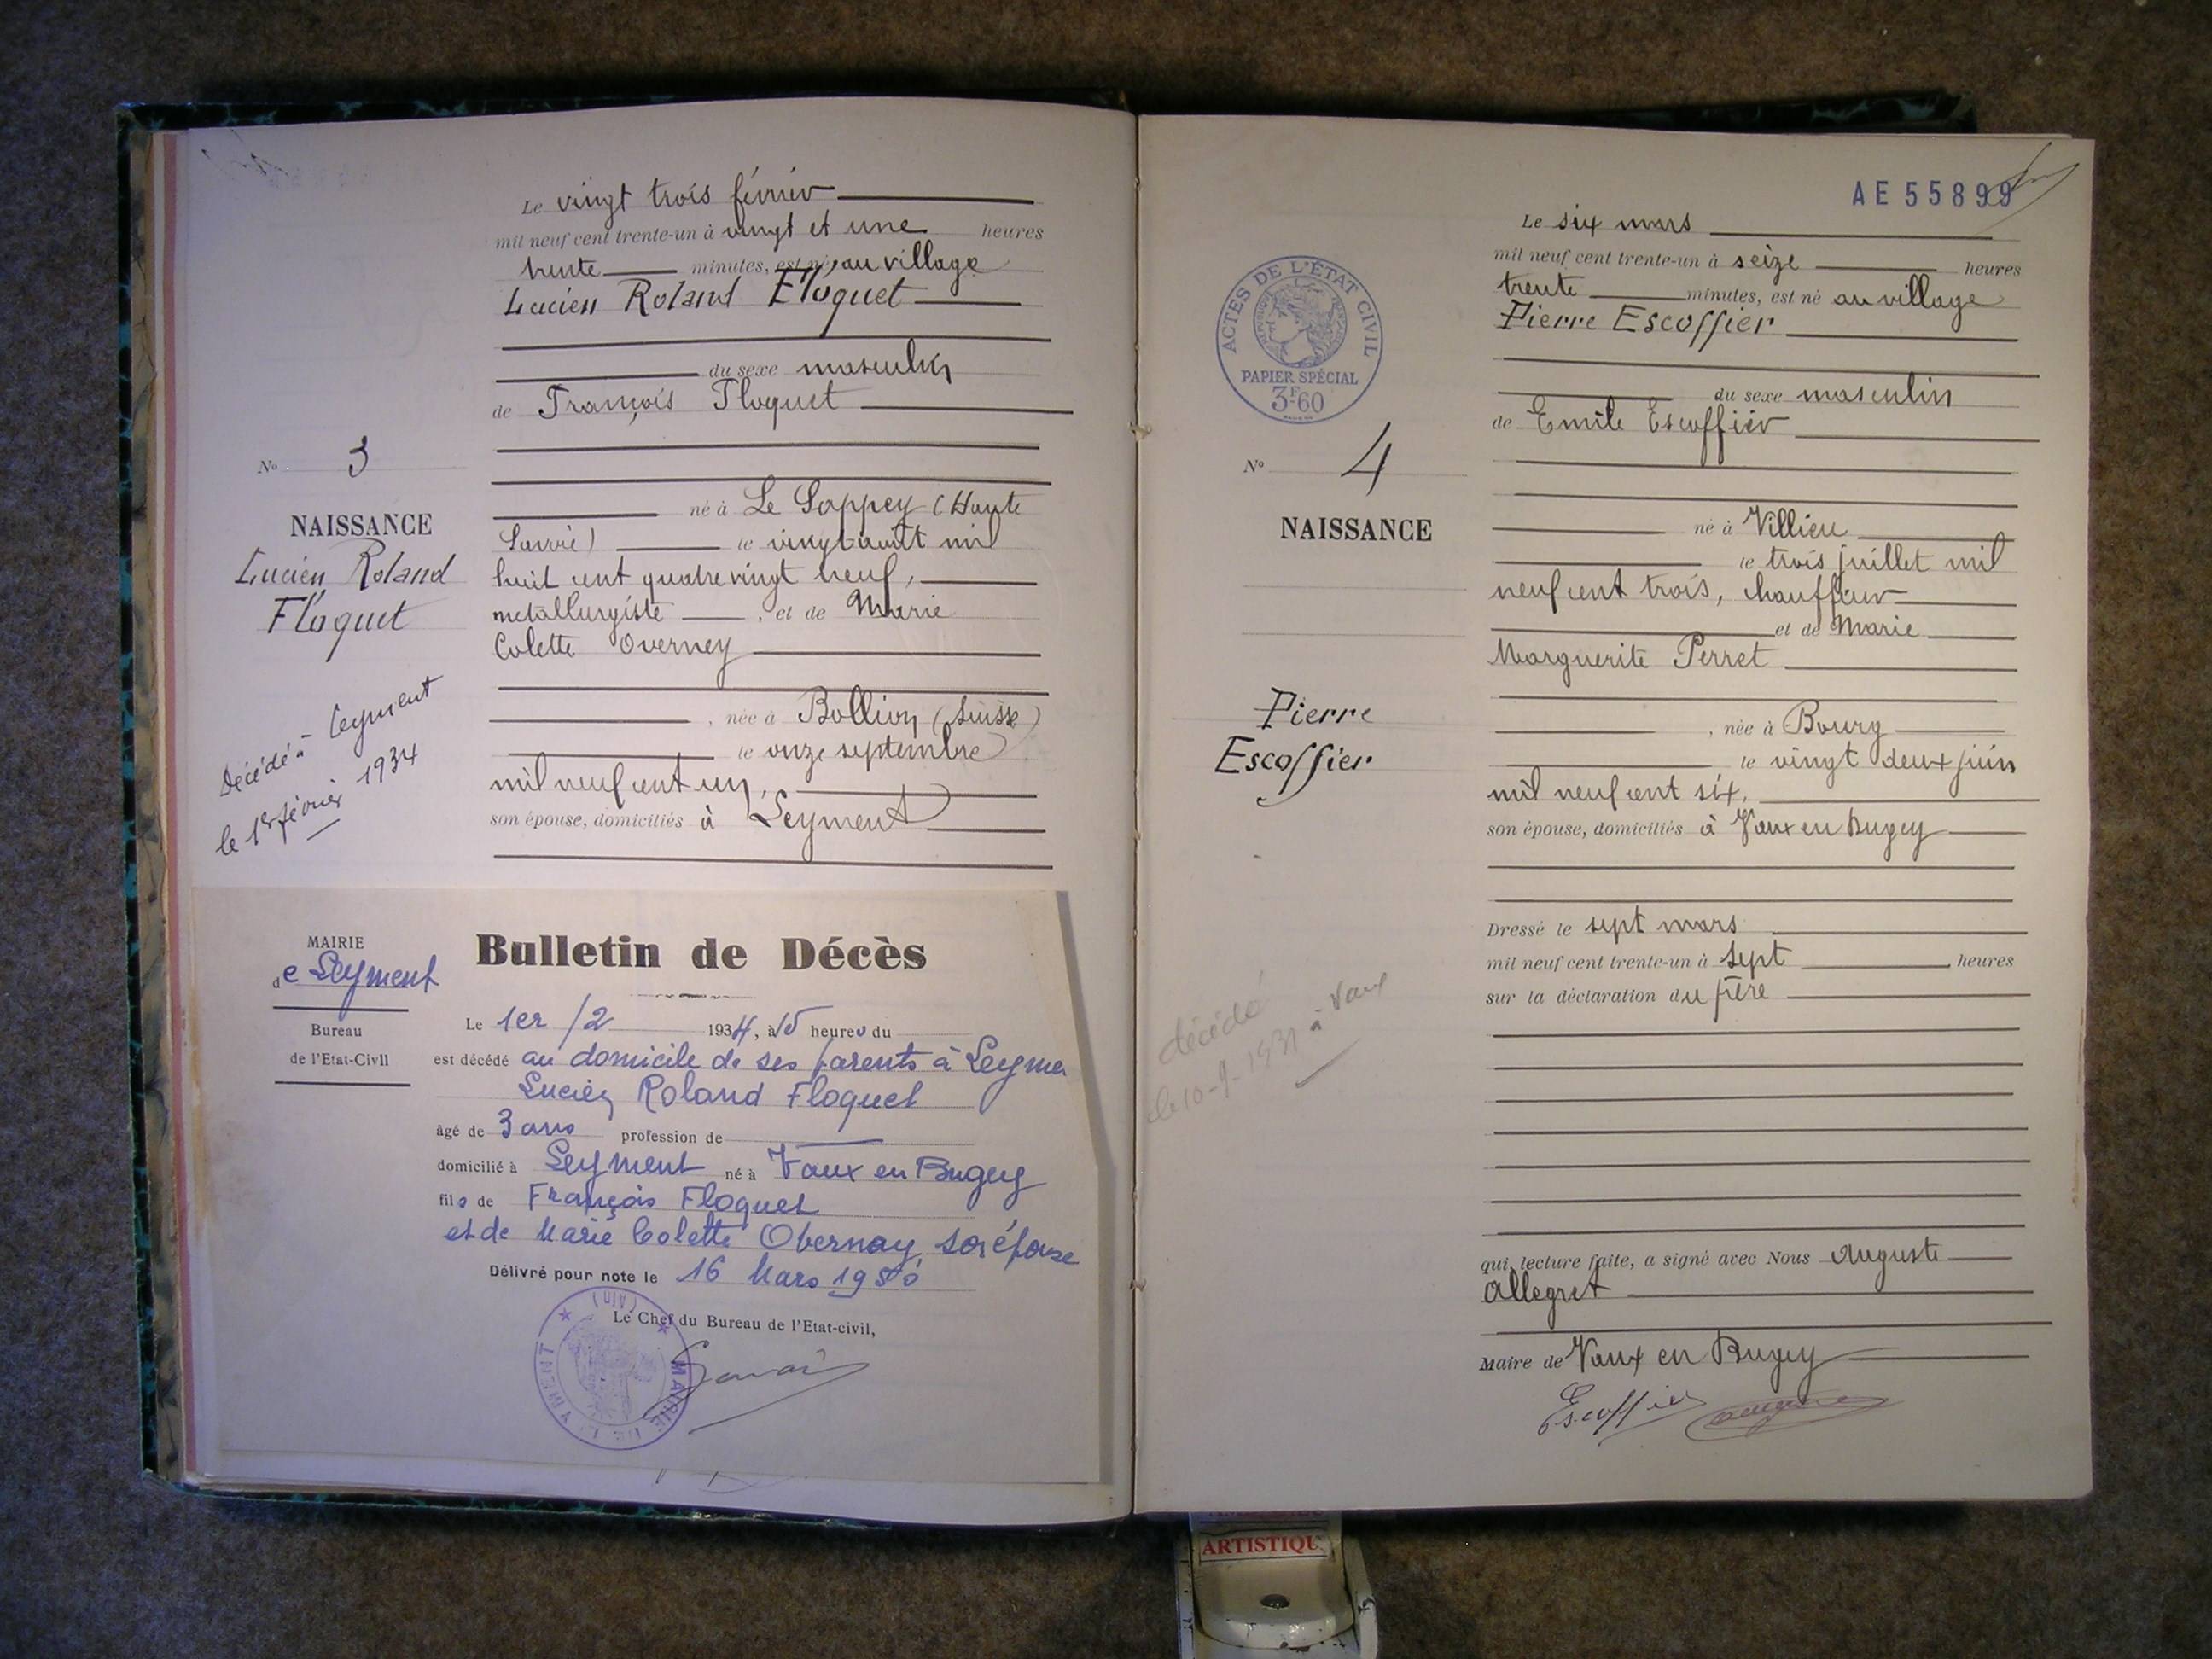 Le vingt trois février
mil neuf cent trente-un à vingt et une heures
trente minutes, est né, au village
Lucien Roland Floquet
du sexe masculin
de François Floquet
né à Le Sappey (Haute
Savoie) le vingt août mil
huit cent quatre vingt neuf,
metallurgiste, et de Marie
Colette Overney
, née à Bollion (Suisse)
le onze septembre
mil neuf cent un,
son épouse, domiciliés à Leyment
No 3
NAISSANCE
Lucien Roland
Floquet
Décédé à Leyment
le 1er février 1934
MAIRIE
de Leyment
Bureau
de l'Etat-Civil
Bulletin de Décès
Le 1er /2 1934, à 15 heures du
est décédé au domicile de ses parents à Leyme
Lucien Roland Floquet
âgé de 3 ans profession de
domicilié à Leyment né à Vaux en Bugey
fils de François Floquet
et de Marie Colette Obernay son épouse
Délivré pour note le 16 Mars
Le Chef du Bureau de l'Etat-civil,
MAIRIE DE LEYMENT (AIN)
AE 55899
ACTES DE L'ÉTAT CIVIL
PAPIER SPÉCIAL
3F60
No 4
NAISSANCE
Pierre
Escoffier
décédé
le 10-9-1931 à Vaux
Le six mars
mil neuf cent trente-un à seize heures
trente minutes, est né au village
Pierre Escoffier
du sexe masculin
de Emile Escoffier
né à Villieu
le trois juillet mil
neuf cent trois, chauffeur
et de Marie
Marguerite Perret
, née à Bourg
le vingt deux juin
mil neuf cent six,
son épouse, domiciliés à Vaux en Bugey
Dressé le sept mars
mil neuf cent trente-un à sept heures
sur la déclaration du père
qui, lecture faite, a signé avec Nous Auguste
Allegret
Maire de Vaux en Bugey
Escoffier
ARTISTIQU